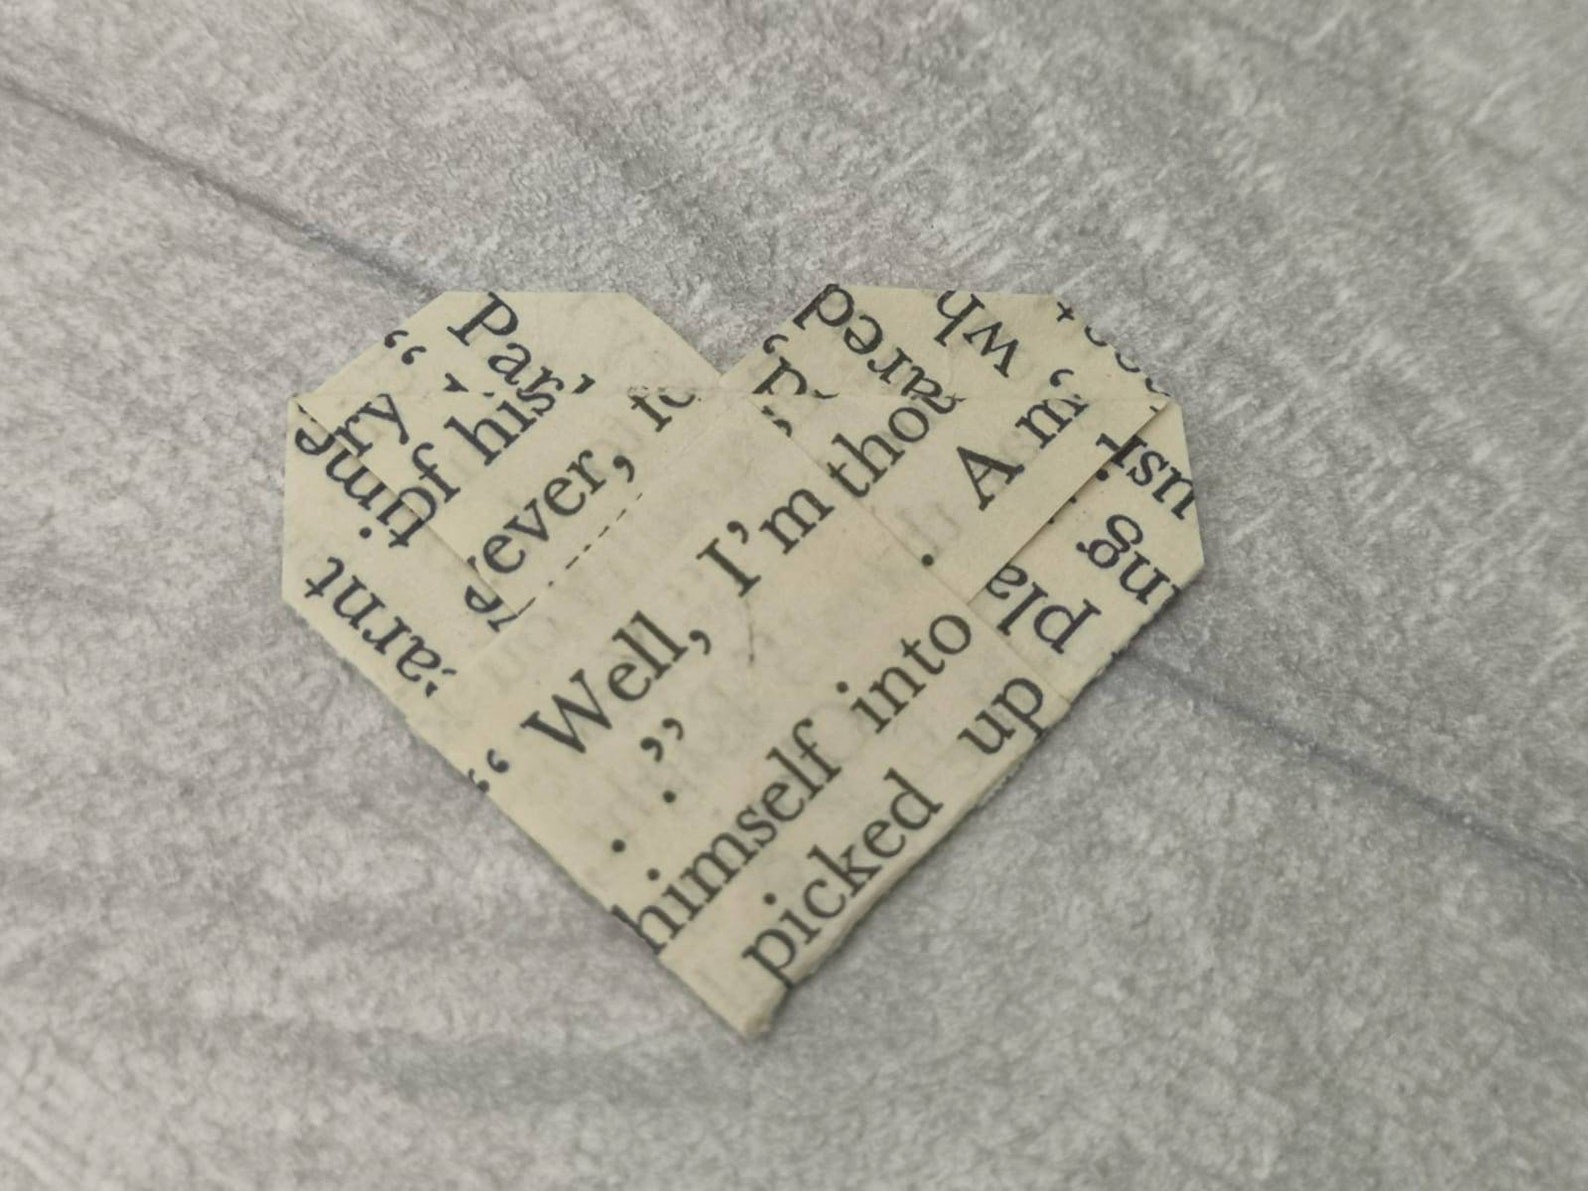 “ Par
ery
of his
time
arnt
ever, fo
“ Well, I’m thou
.”
himself into
picked up
A m
ared
wh
ust
ng
pla